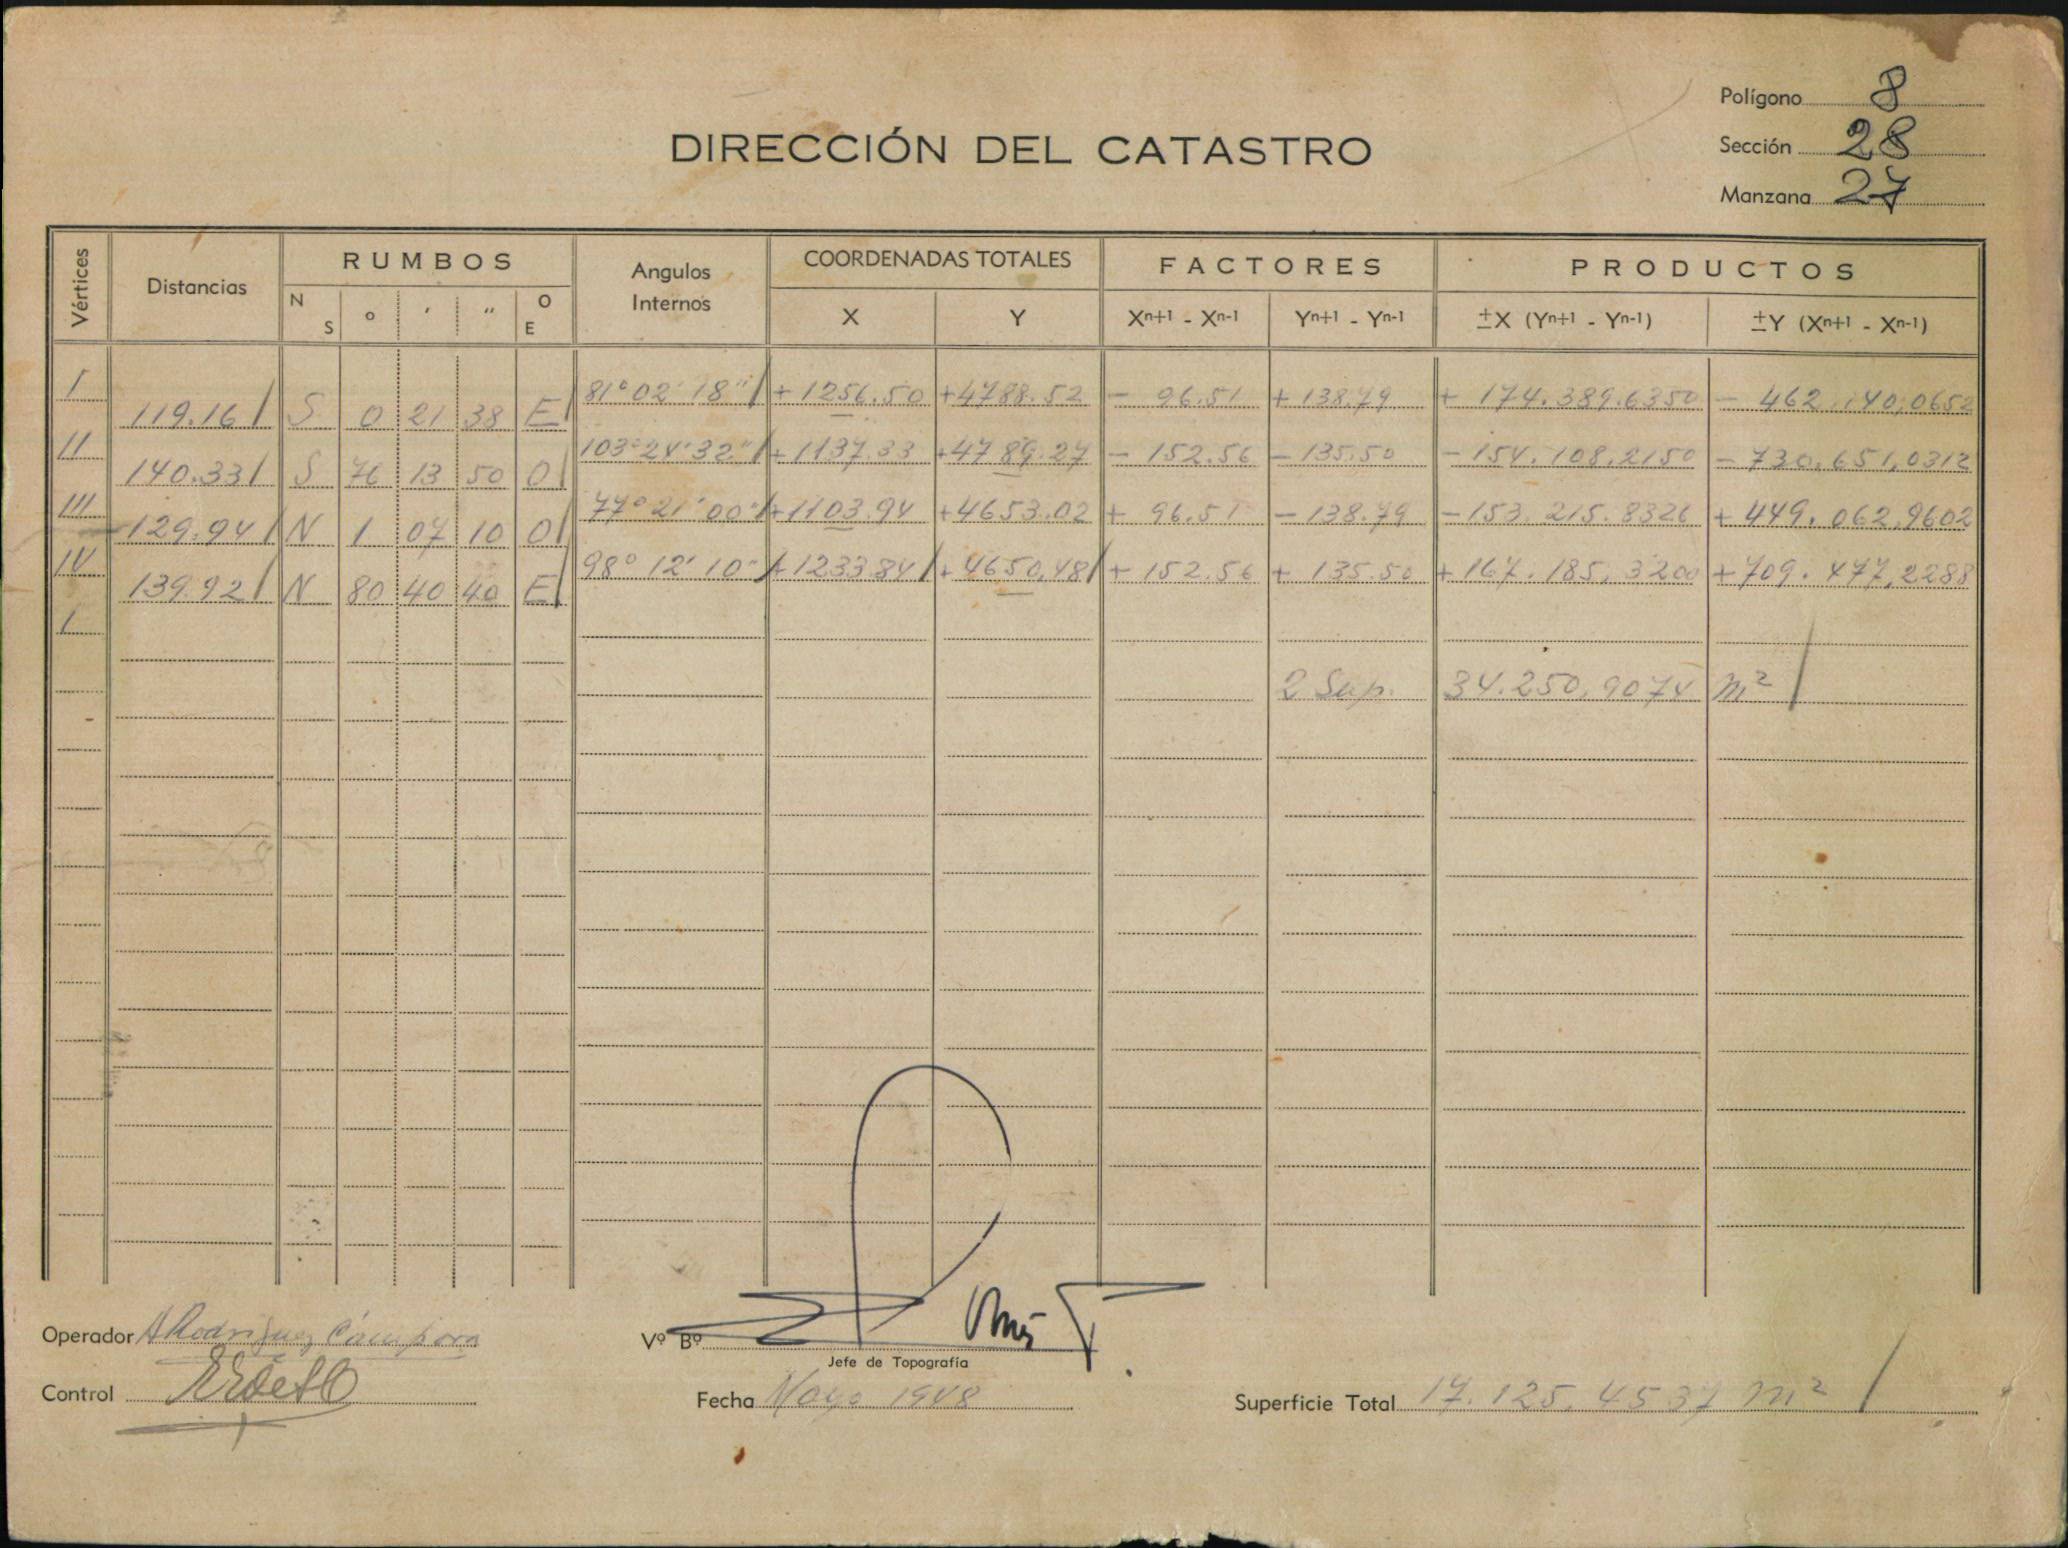 Polígono 8
DIRECCIÓN DEL CATASTRO
Sección 28
Manzana 27
Vértices Distancias RUMBOS Angulos Internos COORDENADAS TOTALES FACTORES PRODUCTOS
N S ° ′ ″ O E X Y Xn+1 - Xn-1 Yn+1 - Yn-1 ±X (Yn+1 - Yn-1) ±Y (Xn+1 - Xn-1)
I 81° 02' 18" + 1256.50 +4788.52 - 96.51 + 138.79 + 174.389.6350 - 462.140,0652
119.16 S 0 21 38 E
II 103°24'32" +1137.33 +4789.27 - 152.56 - 135.50 - 154.108.2150 - 730.651,0312
140.33 S 76 13 50 O
III 77° 21' 00" +1103.94 +4653.02 + 96.51 - 138.79 - 153.215.8326 + 449.062,9602
129.94 N 1 07 10 O
IV 98° 12' 10" +1233.84 +4650,48 + 152.56 + 135.50 + 167.185,3200 + 709.477,2288
139.92 N 80 40 40 E
I
2 Sup. 34.250,9074 m²
Operador A Rodriguez Cámpora
Vº Bº
Jefe de Topografía
Control
Fecha Mayo 1948
Superficie Total 17.125.4537 m²